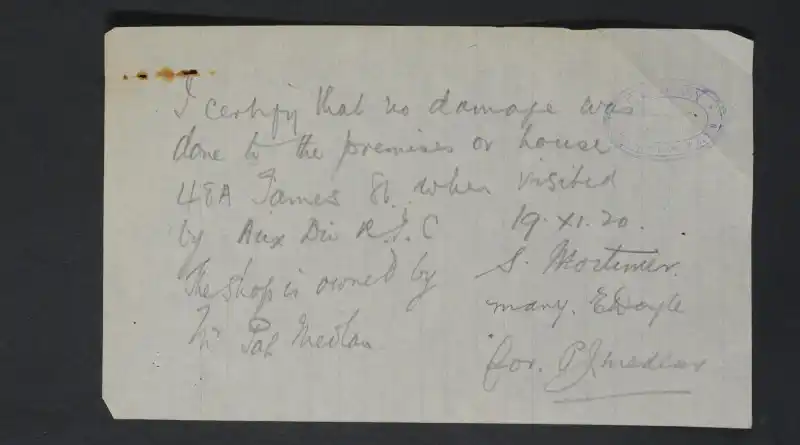 I certify that no damage was
done to the premises or house
48A James St. when visited
by Aux Div R.I.C 19.XI.20.
The shop is owned by
Mr Pat Medlar
S. Mortimer.
many. E Doyle
for. P J Medlar